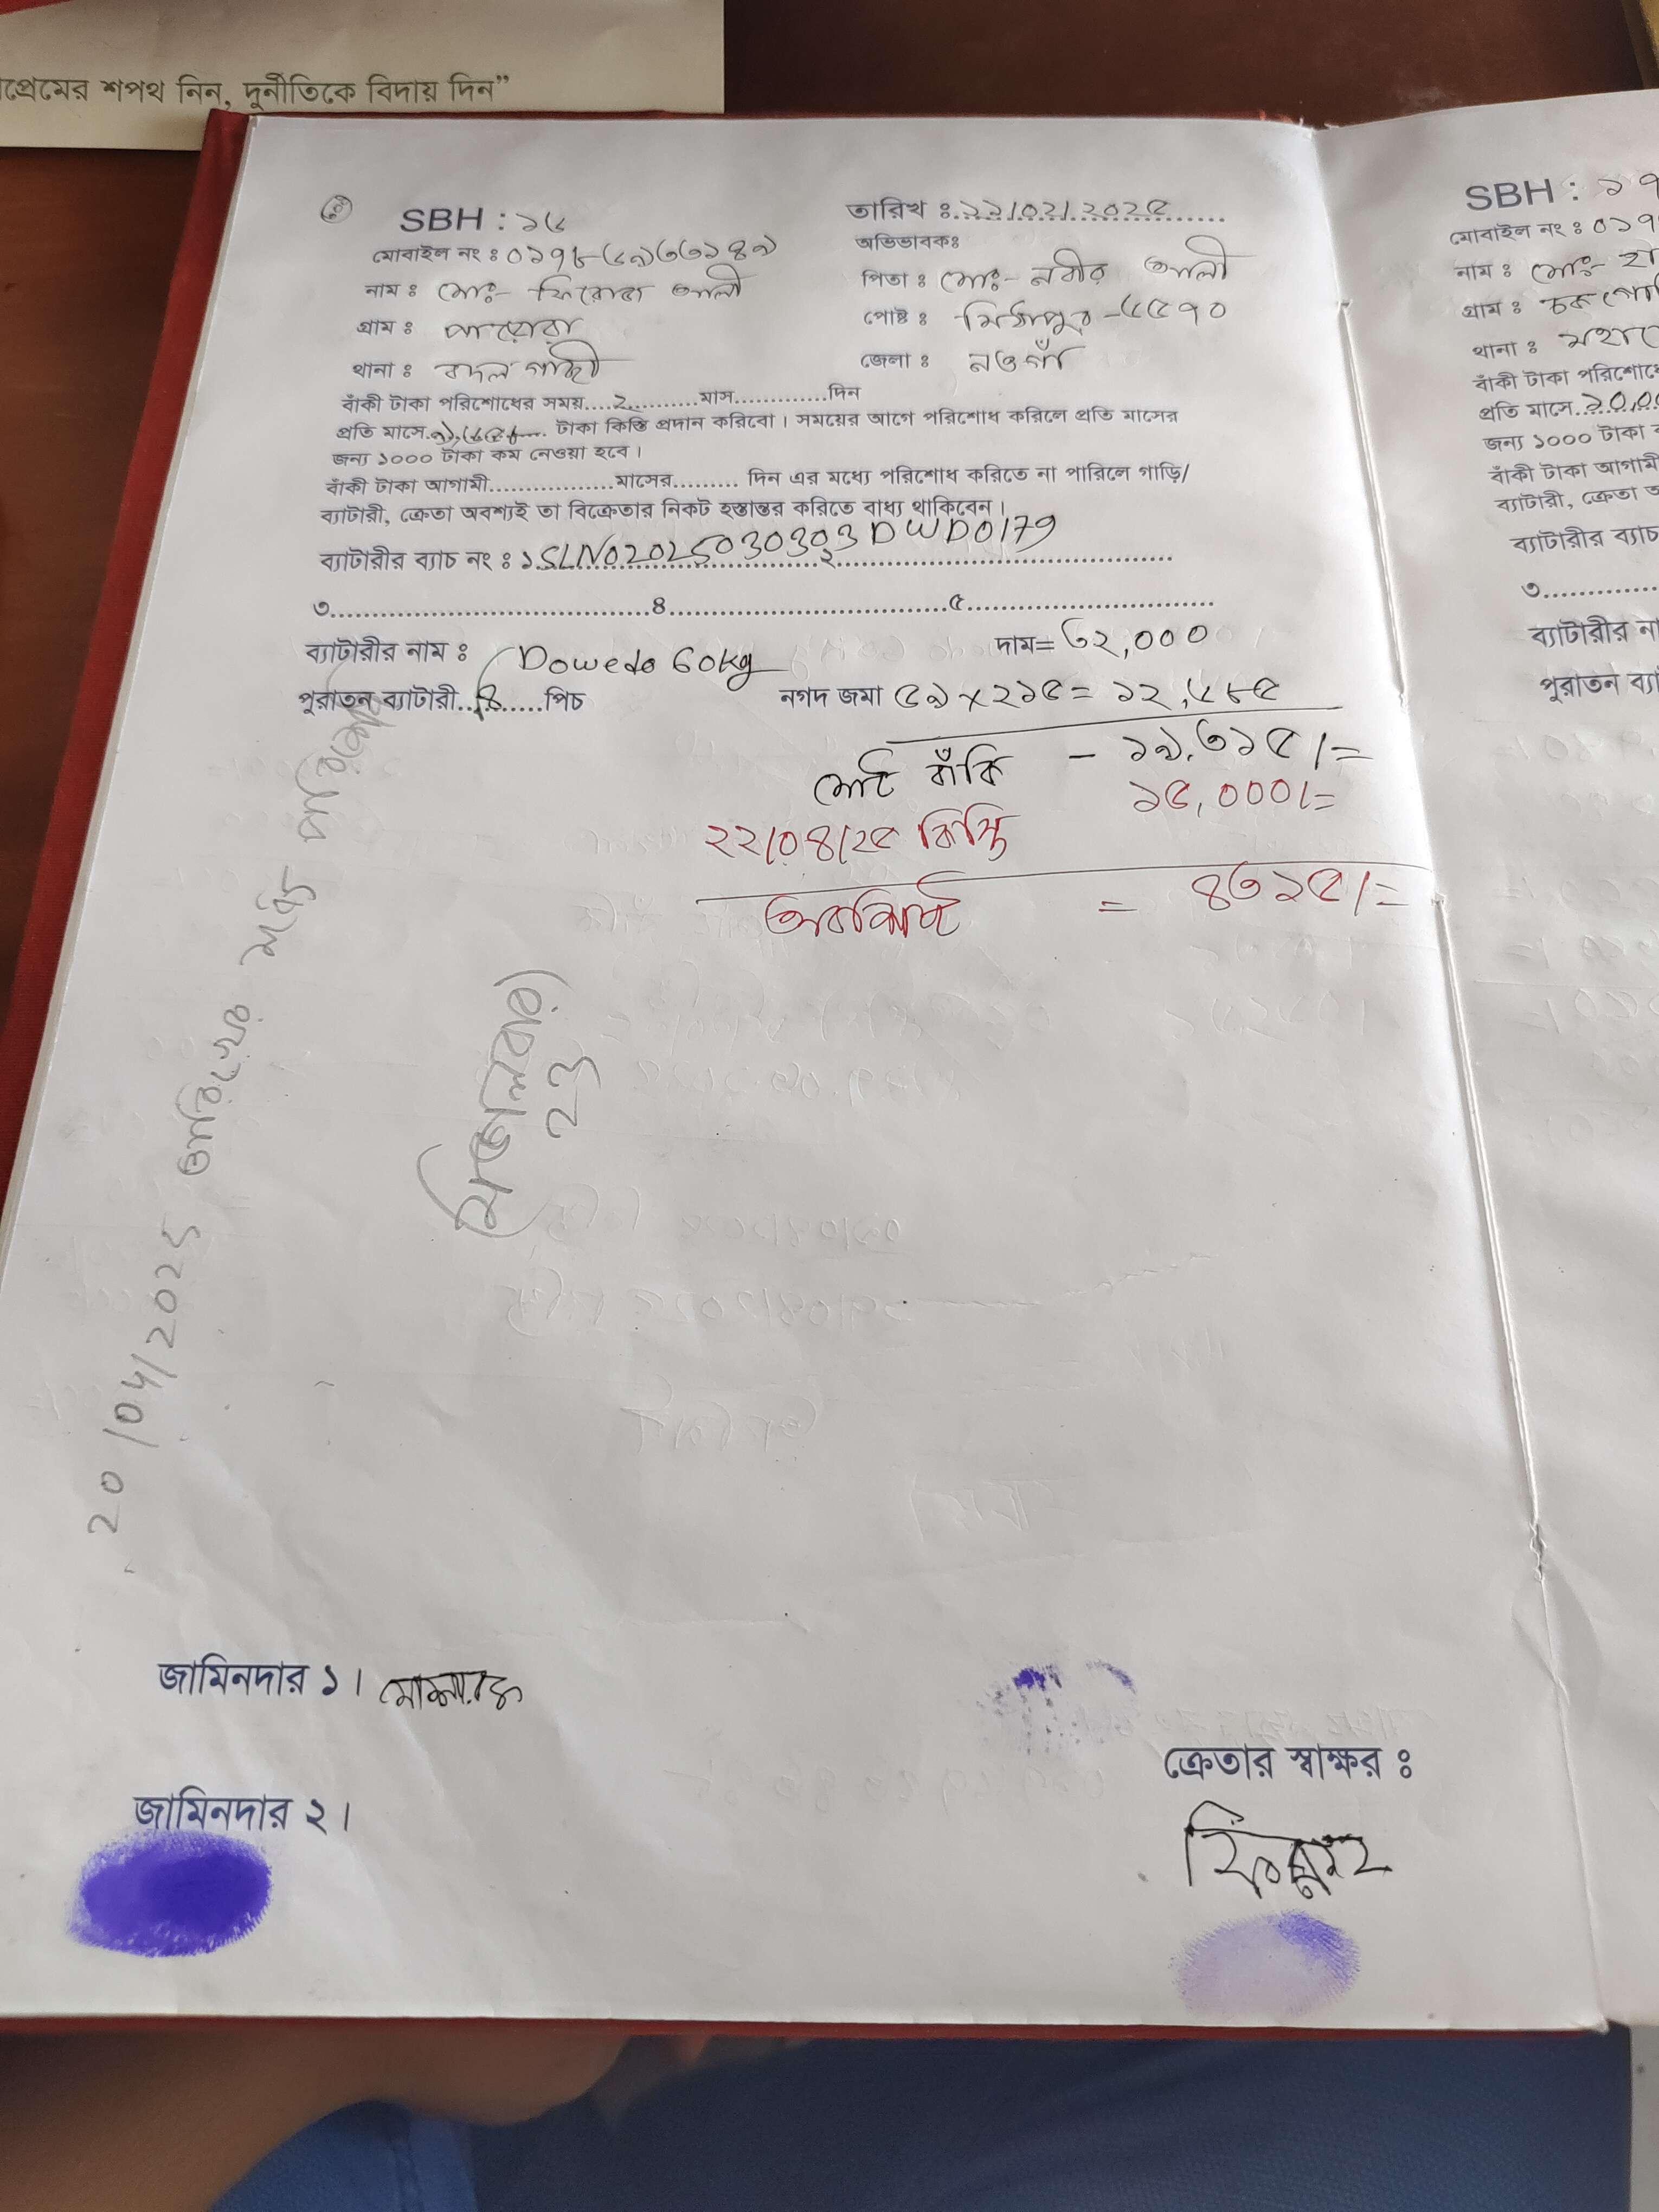 প্রেমের শপথ নিন, দুর্নীতিকে বিদায় দিন”
SBH : ১৬
তারিখ ঃ ১১/০২/.২০২৫
মোবাইল নং ঃ
অভিভাবকঃ
নাম ঃ মোঃ- ফিরোজ আলী
পিতা ঃ মোঃ- নবীর আলী
গ্রাম ঃ পারোরা
পোষ্ট ঃ মিঠাপুর -৬৫৭০
থানা ঃ বদলগাছী
জেলা ঃ নওগাঁ
বাঁকী টাকা পরিশোধের সময়....২..........মাস..............দিন
প্রতি মাসে টাকা কিস্তি প্রদান করিবো। সময়ের আগে পরিশোধ করিলে প্রতি মাসের
জন্য ১০০০ টাকা কম নেওয়া হবে।
বাঁকী টাকা আগামী..................মাসের.......... দিন এর মধ্যে পরিশোধ করিতে না পারিলে গাড়ি/
ব্যাটারী, ক্রেতা অবশ্যই তা বিক্রেতার নিকট হস্তান্তর করিতে বাধ্য থাকিবেন।
ব্যাটারীর ব্যাচ নং ঃ ১.SLNO2025030303DWD0179
২
৩....................................৪....................................৫............................
ব্যাটারীর নাম ঃ Dowedo 60kg
দাম= ৩২,০০০
পুরাতন ব্যাটারী..৪.......পিচ
নগদ জমা ৫৯ x ২১৫= ১২,৬৮৫
মোট বাঁকি - ১৯,৩১৫/=
২২/০৪/২৫ কিস্তি ১৫,০০০/=
অবশিষ্ট = ৪৩১৫/=
20/04/2025 তারিখের মধ্যে
23
জামিনদার ১।
জামিনদার ২।
ক্রেতার স্বাক্ষর ঃ
SBH : ১৭
মোবাইল নং ঃ ০১৭
নাম ঃ মোঃ-
গ্রাম ঃ
থানা ঃ
বাঁকী টাকা পরিশোধে
প্রতি মাসে
জন্য ১০০০ টাকা ক
বাঁকী টাকা আগামী
ব্যাটারী, ক্রেতা অ
ব্যাটারীর ব্যাচ
৩..............
ব্যাটারীর না
পুরাতন ব্যা